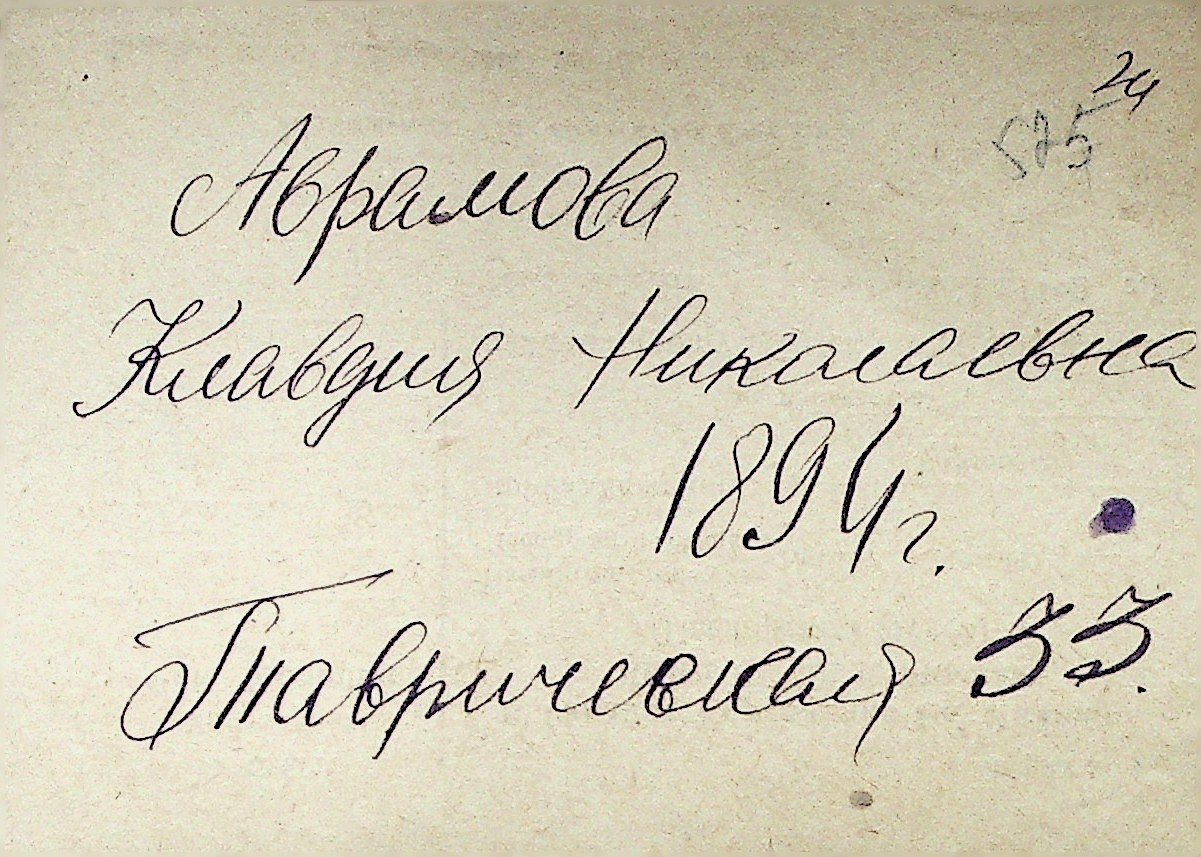 24
575
Аврамова
Клавдия Николаевна
1894 г.
Таврическая 33.